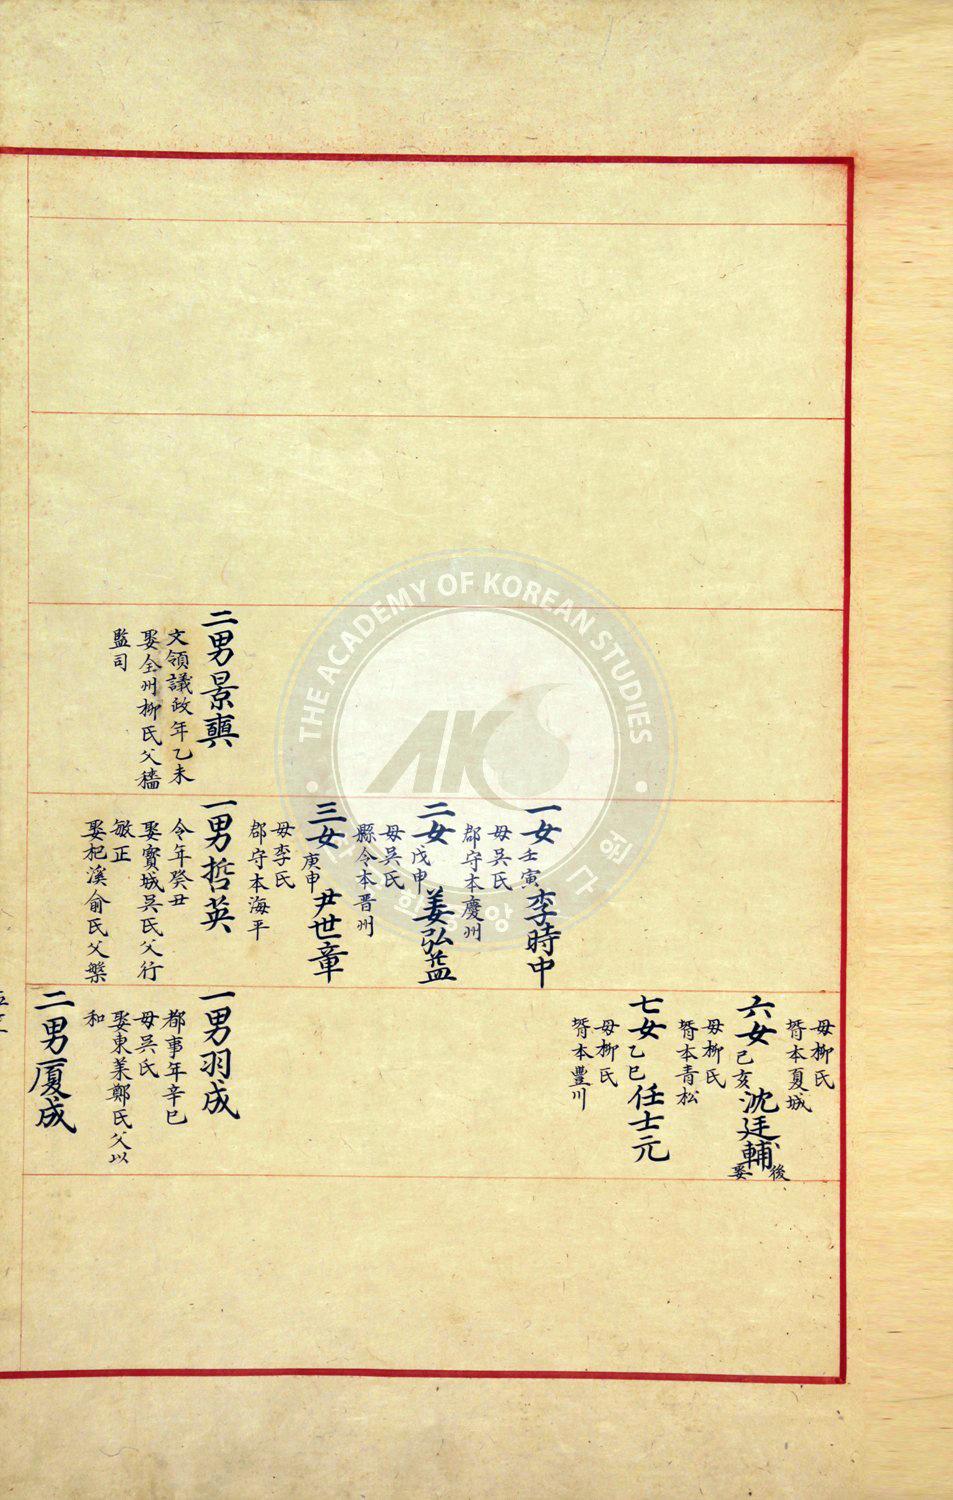 二男景奭
文領議政年乙未
娶全州柳氏父穡
監司
一女壬寅李時中
母吳氏
郡守本慶州
二女戊申姜弘益
母吳氏
縣令本晋州
三女庚申尹世章
母李氏
郡守本海平
一男哲英
令年癸丑
娶寶城吳氏父行
敏正
娶杞溪俞氏父槃
母柳氏
壻本夏城
六女己亥沈廷輔後娶
母柳氏
壻本青松
七女乙巳任士元
母柳氏
壻本豊川
一男羽成
都事年辛巳
母吳氏
娶東萊鄭氏父以
和
二男厦成
THE ACADEMY OF KOREAN STUDIES
AKS